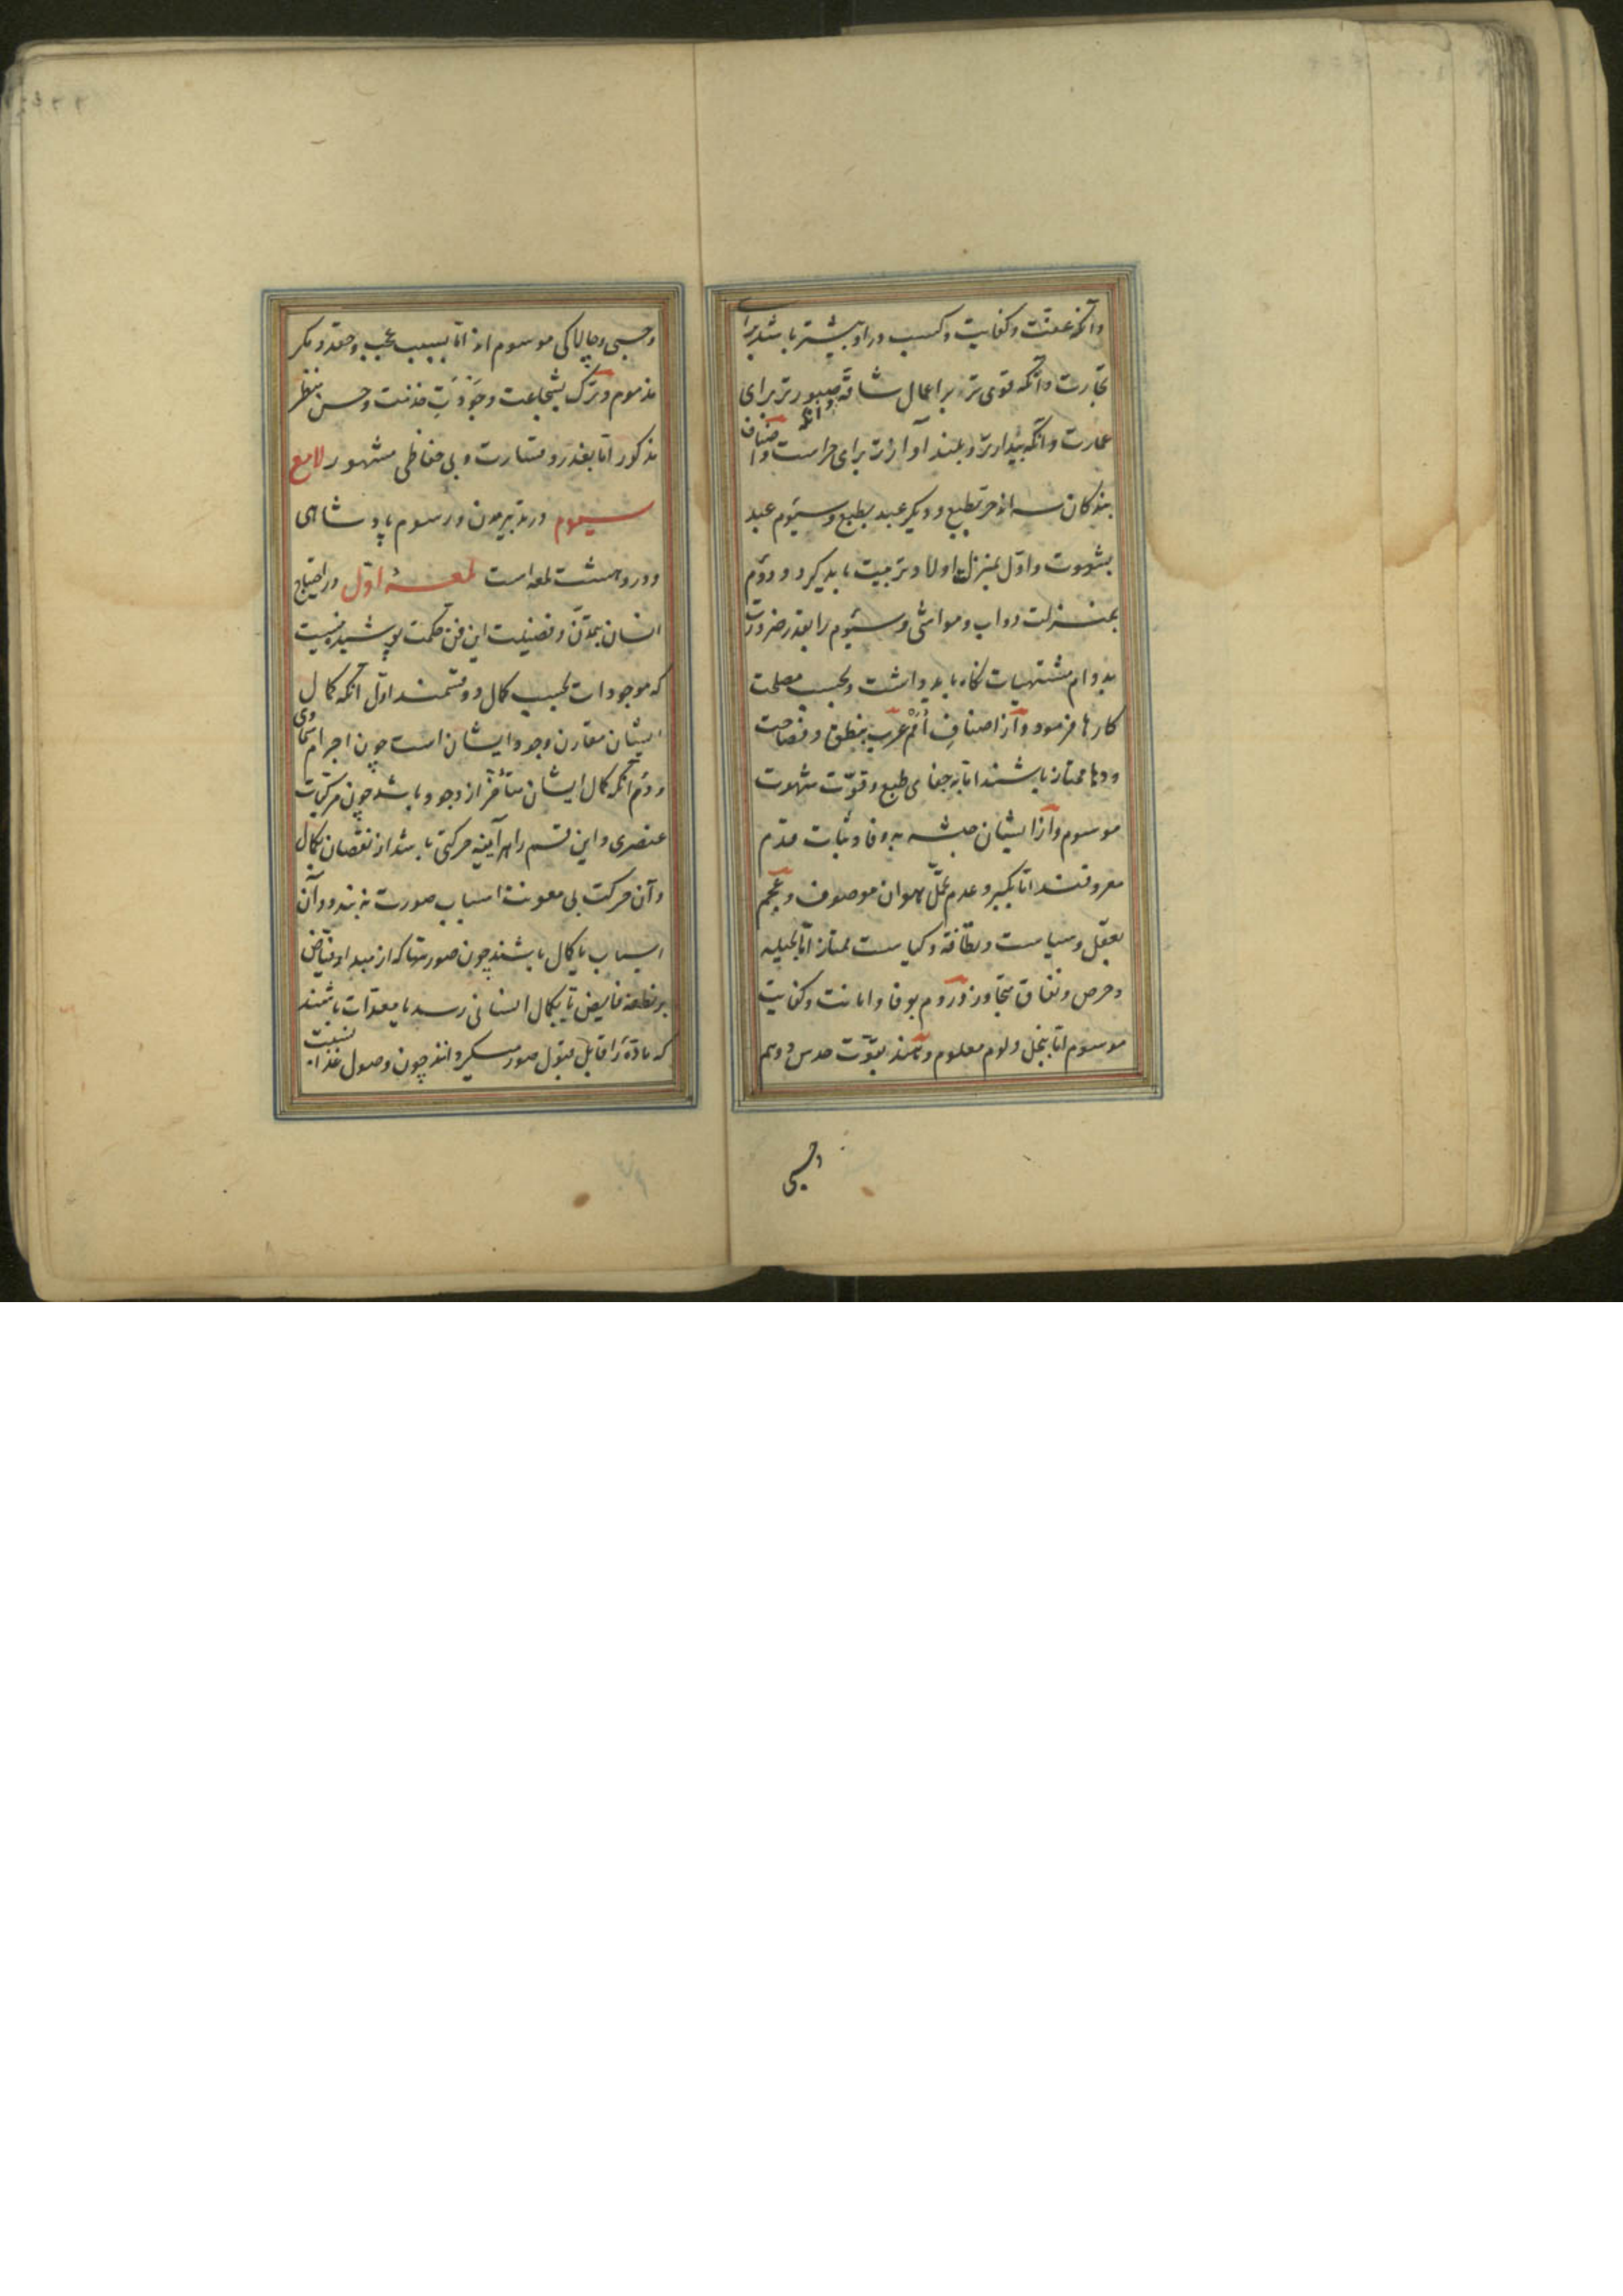 وآنکه عفت وکفایت وکسب در او بیشتر باشد برای
تجارت وآنکه قوی تر و بر اعمال شاقه صبورتر برای
عمارت وآنکه بیدارتر و بلند آوازتر برای حراست واصناف
بندکان سه اند حر بطبع ودیکر عبد بطبع وسیوم عبد
بشهوت واول بمنزلت اولاد تربیت باید کرد ودوم
بمنزلت دواب ومواشی وسیوم را بقدر ضرورت
بدوام مشتهیات نکاه باید داشت وبحسب مصلحت
کارها فرمود واز اصناف اُمَم عرب بنطق وفصاحت
ودها ممتاز باشند اما به جفای طبع وقوّت شهوت
موسوم واز ایشان حبشه به وفا وثبات قدم
معروفند اما بکبر وعدم تحمّل هوان موصوف وعجم
بعقل وسیاست ونظافة وکیاست ممتاز امّا بحیله
وحرص ونفاق متجاوز وروم بوفا وامانت وکفایت
موسوم اما ببخل ولوم معلوم وهند بقوّت حدس ووهم
وچستی
وچستی وچالاکی موسوم اند امّا بسبب عجب وحقد ومکر
مذموم وترک بشجاعت وجَودَتِ خدمت وحسن منظر
مذکور امّا بغدر وقساوت وبی حفاظی مشهور لامع
سیوم در تدبیر مدن ورسوم پادشاهی
ودرو هشت لمعه است لمعهٔ اوّل در احتیاج
انسان بتمدّن وفضیلت این فن حکمت پوشیده نیست
که موجودات بحسب کمال دو قسمند اوّل آنکه کمال
ایشان مقارن وجود ایشان است چون اجرام سماوی
ودوم آنکه کمال ایشان متأخّر از وجود باشد چون مرکبات
عنصری واین قسم را هر آینه حرکتی باشد از نقصان بکمال
وآن حرکت بی معونت اسباب صورت نه بندد وآن
اسباب یا کمال باشند چون صورتها که از مبداء فیّاض
بر نطفه فایض تا بکمال انسانی رسد یا معدّات باشند
که مادّه را قابل قبول صور میکردانند چون وصول غذا نسبت